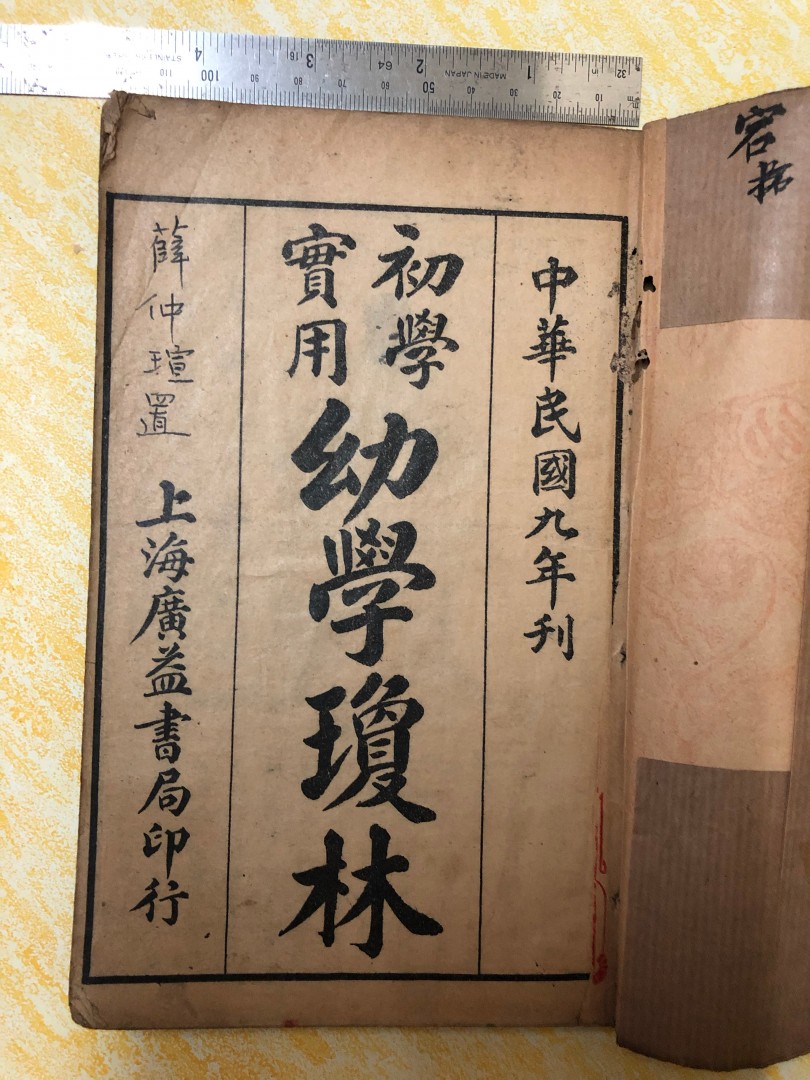 中華民國九年刊
初學
實用
幼學瓊林
薛仲瑄置
上海廣益書局印行
1
2
3
4
32
64
16
in
MADE IN JAPAN
10
20
30
40
50
60
70
80
90
100
110